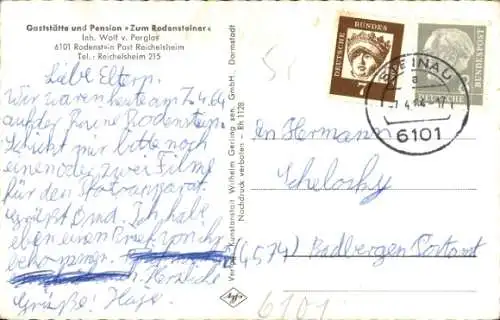 Gaststätte und Pension »Zum Rodensteiner«
Inh. Wolf v. Perglas
6101 Rodenstein Post Reichelsheim
Tel.: Reichelsheim 215
Liebe Eltern.
Wir waren heute am 7.4.64
auf der Ruine Rodenstein.
Schickt mir bitte noch
einen oder zwei Filme
für den Fotoapparat.
Grüßt Omd. Ich habe
eben einen Brief von ihr
bekommen.
Herzliche
Grüße!
Verlag Kunstanstalt Wilhelm Gerling sen. GmbH. Darmstadt
Nachdruck verboten - Rh 1128
DEUTSCHE BUNDESPOST
7
BUNDESPOST
STEINAU
a
6101
Hermann
(4574) Badbergen Postamt
6101